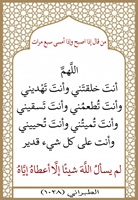 من قال إذا أصبح وإذا أمسى سبع مرات
اللهم
أنت خلقتني وأنت تهديني
وأنت تطعمني وأنت تسقيني
وأنت تميتني وأنت تحييني
وأنت على كل شيء قدير
لم يسأل الله شيئا إلا أعطاه إياه
الطبراني (١٠٢٨)